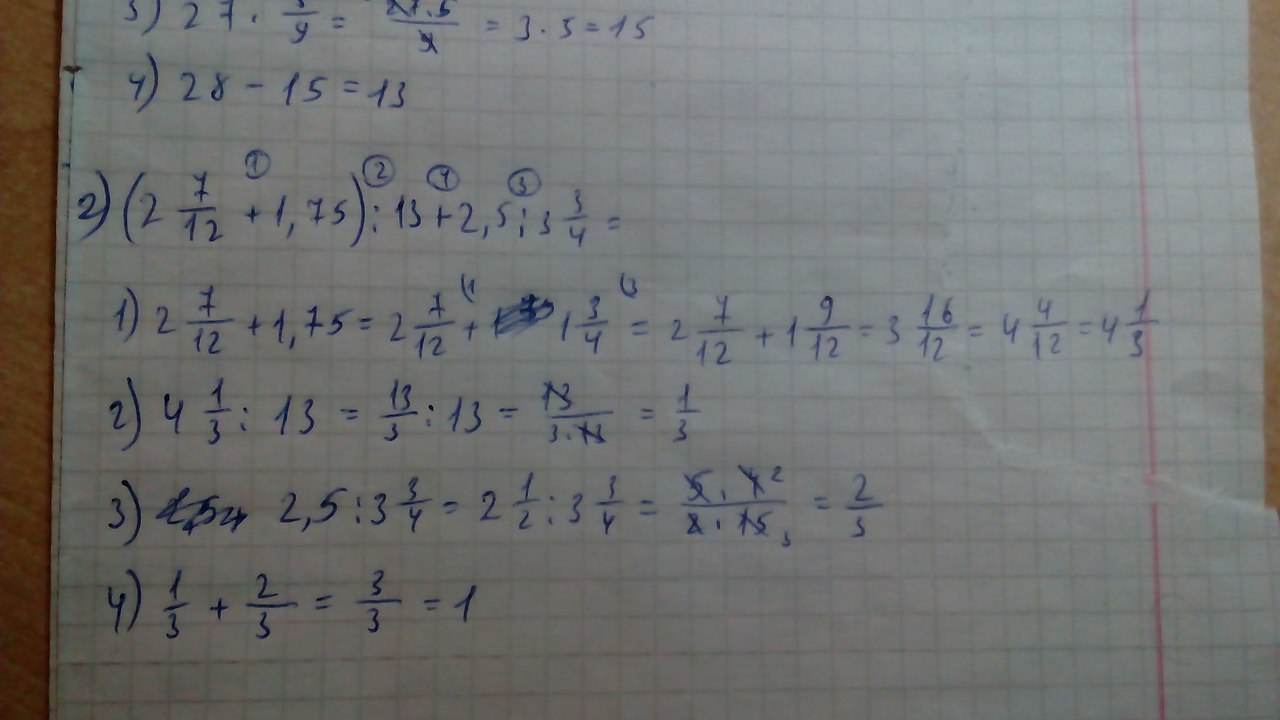 3) 27 · 5/9 = 27·5/9 = 3·5 = 15
4) 28 - 15 = 13
① ② ④ ③
2) (2 7/12 + 1,75) : 13 + 2,5 : 3 3/4 =
1) 2 7/12 + 1,75 = 2 7/12 + 1 3/4 = 2 7/12 + 1 9/12 = 3 16/12 = 4 4/12 = 4 1/3
2) 4 1/3 : 13 = 13/3 : 13 = 13/3·13 = 1/3
3) 2,5 : 3 3/4 = 2 1/2 : 3 3/4 = 5·4 2/2·15 3 = 2/3
4) 1/3 + 2/3 = 3/3 = 1